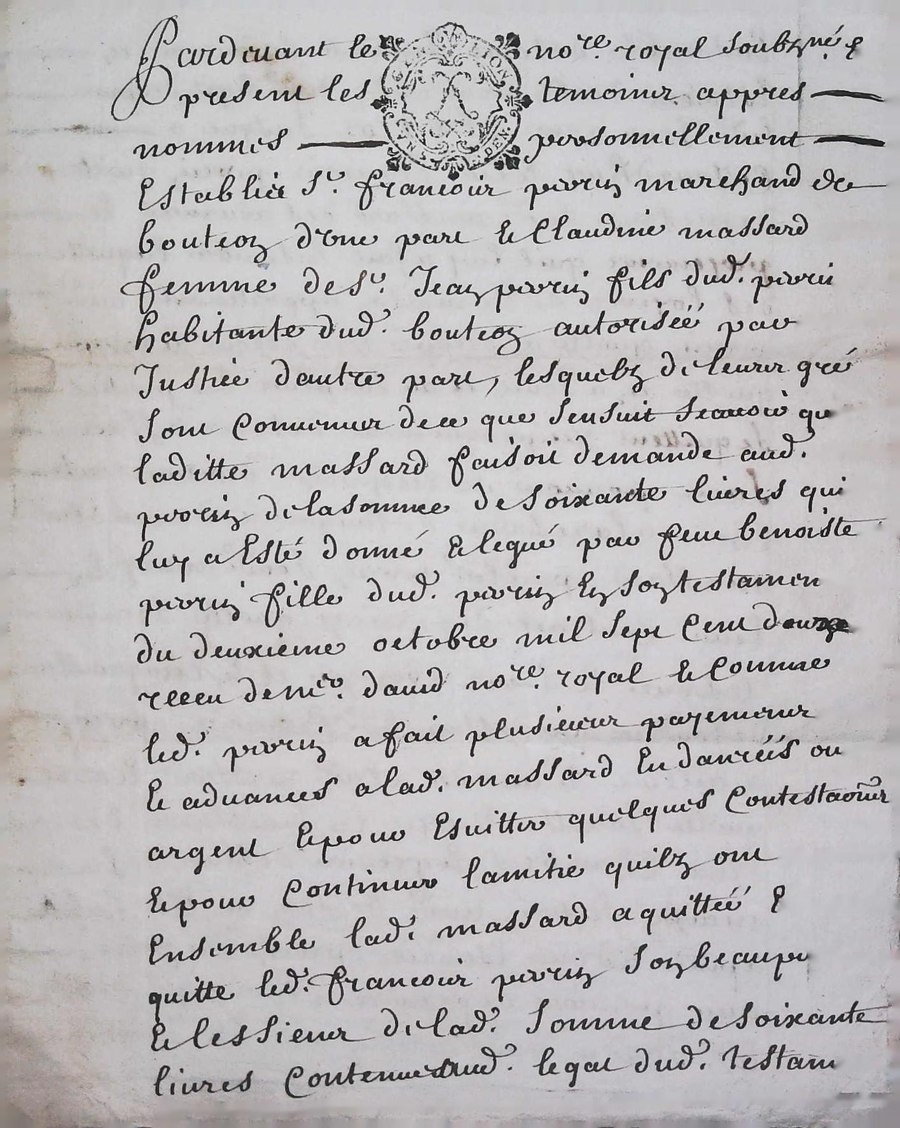 Pardevant le nore. royal soubzné. &
present les temoins appres
nommes personnellement
Establis Sr. francois perrin marchand de
bouteon d'une part & Claudine massard
femme de Sr. Jean perrin fils dud. perrin
habitante dud. bouteon autorisée par
Justice dautre part, lesquelz de leurs gré
sont convenus de ce que sensuit scavoir que
laditte massard faisoit demande aud.
perrin de la somme de soixante livres qui
luy a Esté donné & legué par feue benoiste
perrin fille dud. perrin En son testamen
du deuxieme octobre mil sept cent douze
receu de mer. david nore. royal & Comme
led. perrin a fait plusieurs payemens
& advances a lad. massard En danreés ou
argent & pour Esvitter quelques Contestaons
& pour Continuer lamitie quilz ont
Ensemble lad. massard a quitteé &
quitte led. francois perrin son beaupe
& les siens de lad. somme de soixante
livres Contenues aud. legat dud. testam